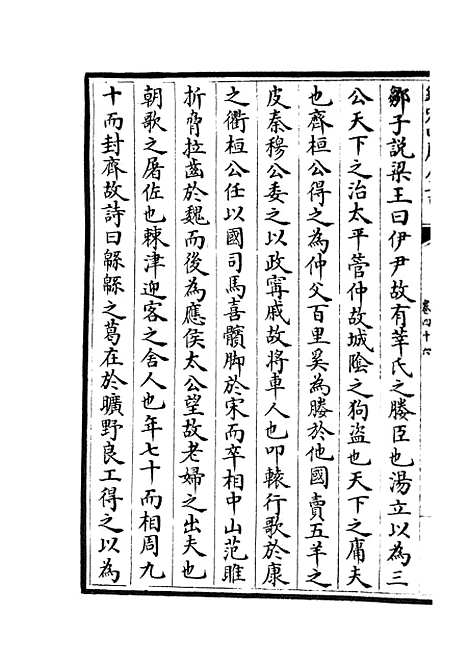 鄒子説梁王曰伊尹故有莘氏之媵臣也湯立以為三
公天下之治太平管仲故城陰之狗盜也天下之庸夫
也齊桓公得之為仲父百里奚為媵於他國賣五羊之
皮秦穆公委之以政寗戚故將車人也叩轅行歌於康
之衢桓公任以國司馬喜髕脚於宋而卒相中山范雎
折脅拉齒於魏而後為應侯太公望故老婦之出夫也
朝歌之屠佐也棘津迎客之舍人也年七十而相周九
十而封齊故詩曰緜緜之葛在於曠野良工得之以為